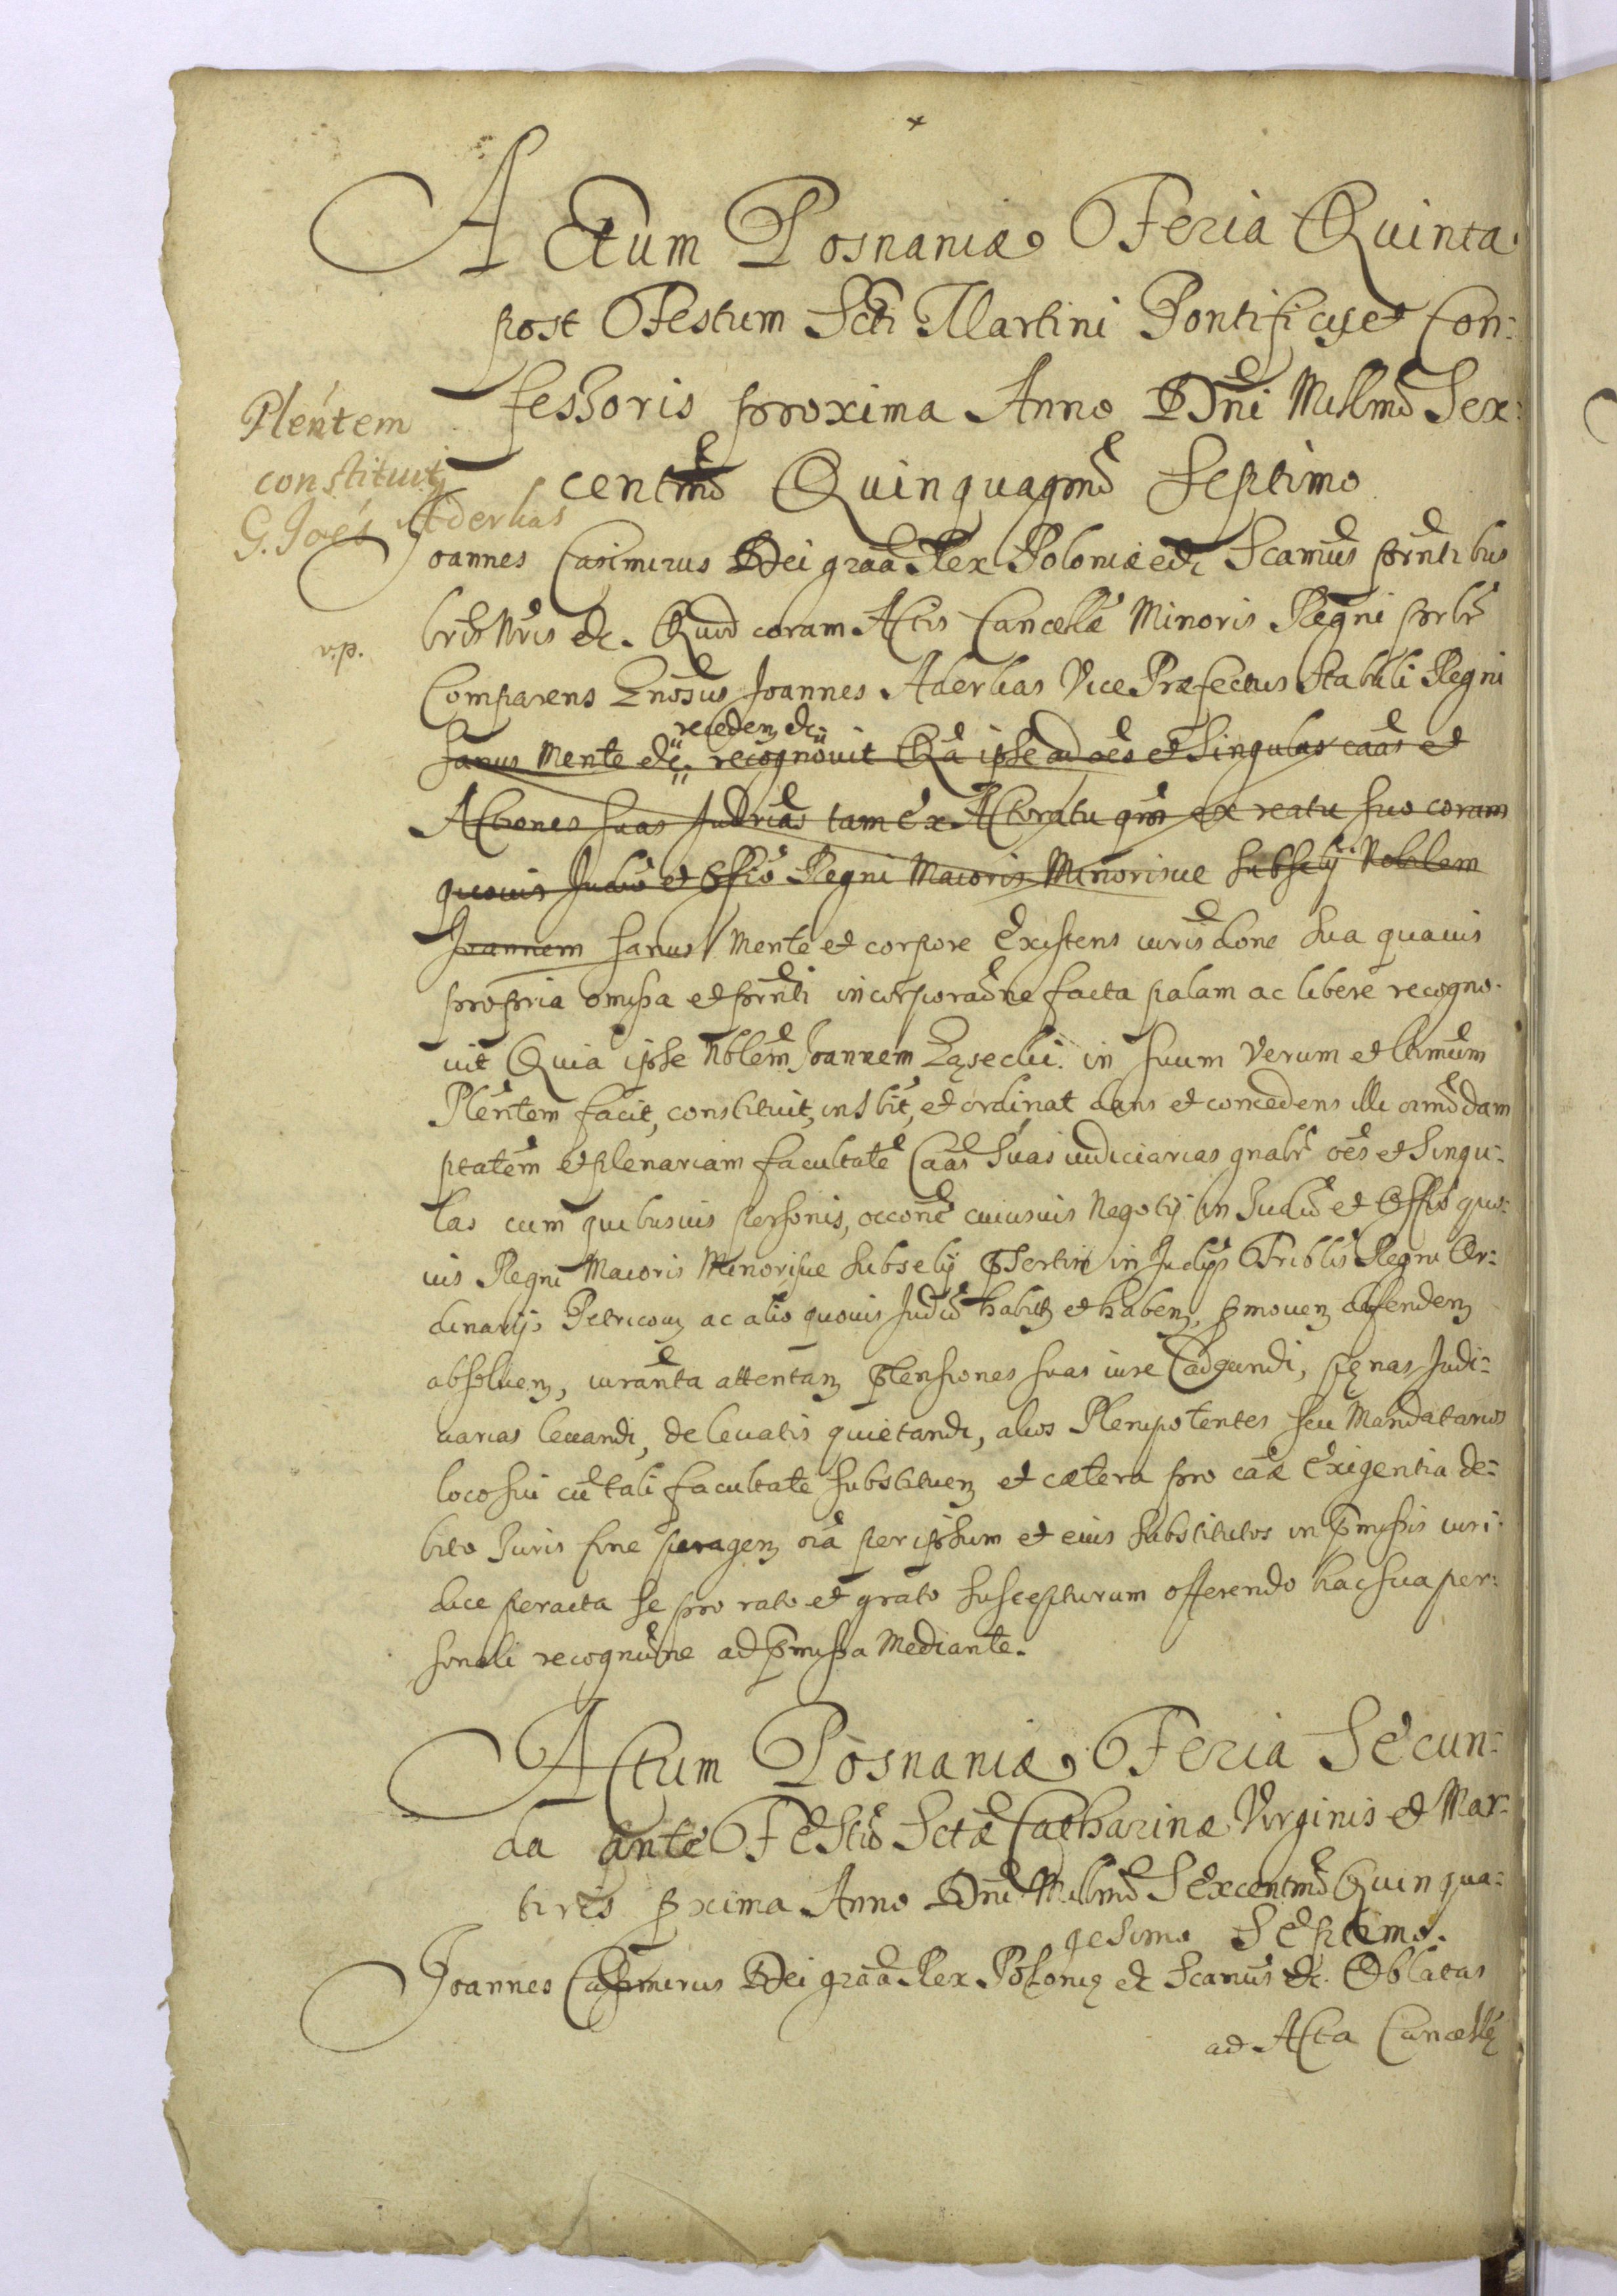 Actum Posnaniæ Feria Quinta
post Festum Scti Martini Pontificis et Con:
fessoris proxima Anno Dni Millmo Sex:
centmo Quinquagmo Septimo
Plentem
constituit
G. Joes Aderkas
Joannes Casimirus Dei graa Rex Poloniæ etc Scamus prntibus
lris Nris etc. Quod coram Actis Cancellæ Minoris Regni prlr
v.p.
Comparens Gnosus Joannes Aderkas Vice Præfectus Stabuli Regni
recedem etc
sanus Mente etc. recognovit Qa ipse ad oes et Singulas caas et
Actiones suas Judrias tam ex Actoratu qm ex reatu suo coram
quovis Judio et Offio Regni Maioris Minorisue Subselij Noblem
Joannem sanus Mente et corpore Existens iurisdone Sua quavis
propria omissa et prnti incorporaone facta palam ac libere recogno-
vit Quia ipse Nblem Joannem in suum Verum et ltimum
Plentem facit, constituit, instit, et ordinat dans et concedens illi oimodam
ptatem et plenariam facultate Caas Suas iudiciarias gnalr oes et Singu:
las cum quibusuis personis, occone cuiusuis Negotij in Judio et Offio quo:
uis Regni Maioris Minorisue Subselij psertim in Judijs Triblis Regni Or:
dinarijs Petricouien ac alio quouis Judio habitis et habendis, pmouen defenden
absoluen, iuranta attentan ptensiones suas iure Caadgundi, penas Judi:
ciarias leuandi, de leuatis quietandi, alios Plenipotentes seu Mandatarios
loco sui cu tali facultate Substituen et cætera pro caæ Exigentia de:
bito Juris fine peragen oia per ipsum et eius Substitutos in pmissis iuri:
dice peracta se pro rato et grato Suscepturum offerendo hac sua per:
sonali recognitione ad pmissa Mediante.
Actum Posnaniæ Feria Secun:
da ante Festu Sctæ Catharinæ Virginis et Mar:
tiris pxima Anno Dni Millmo Sexcentmo Quinqua:
gesimo Septimo.
Joannes Casimirus Dei graa Rex Poloniæ etc Scamus etc. Oblatas
ad Acta Cancellæ